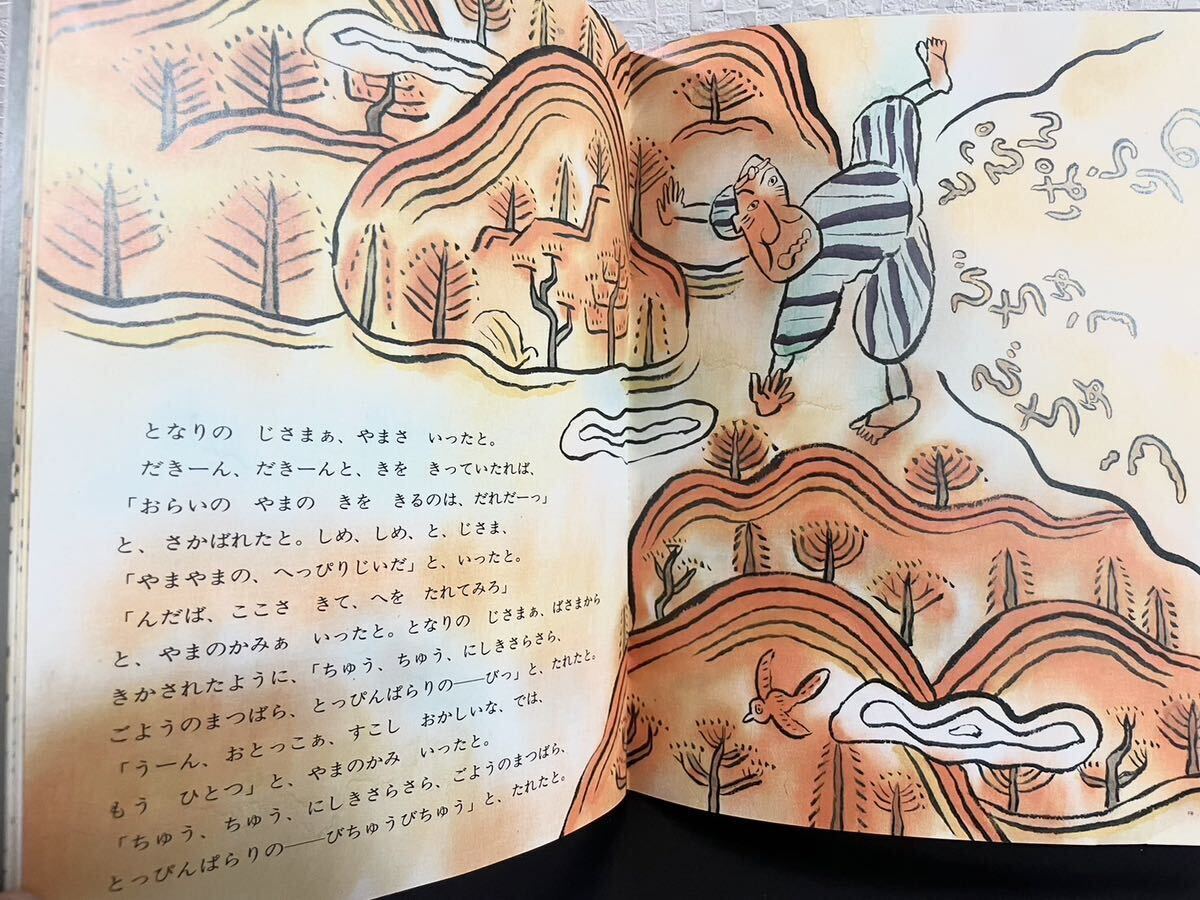 となりの　じさまぁ、やまさ　いったと。
だきーん、だきーんと、きを　きっていたれば、
「おらいの　やまの　きを　きるのは、だれだーっ」
と、さかばれたと。しめ、しめ、と、じさま、
「やまやまの、へっぴりじいだ」と、いったと。
「んだば、ここさ　きて、へを　たれてみろ」
と、やまのかみぁ　いったと。となりの　じさまぁ、ばさまから
きかされたように、「ちゅう、ちゅう、にしきさらさら、
ごようのまつばら、とっぴんぱらりの──びっ」と、たれたと。
「うーん、おとっこぁ、すこし　おかしいな、では、
もう　ひとつ」と、やまのかみ　いったと。
「ちゅう、ちゅう、にしきさらさら、ごようのまつばら、
とっぴんぱらりの──びちゅうびちゅう」と、たれたと。
とぴん
ぱらりの
びちゅうびちゅう